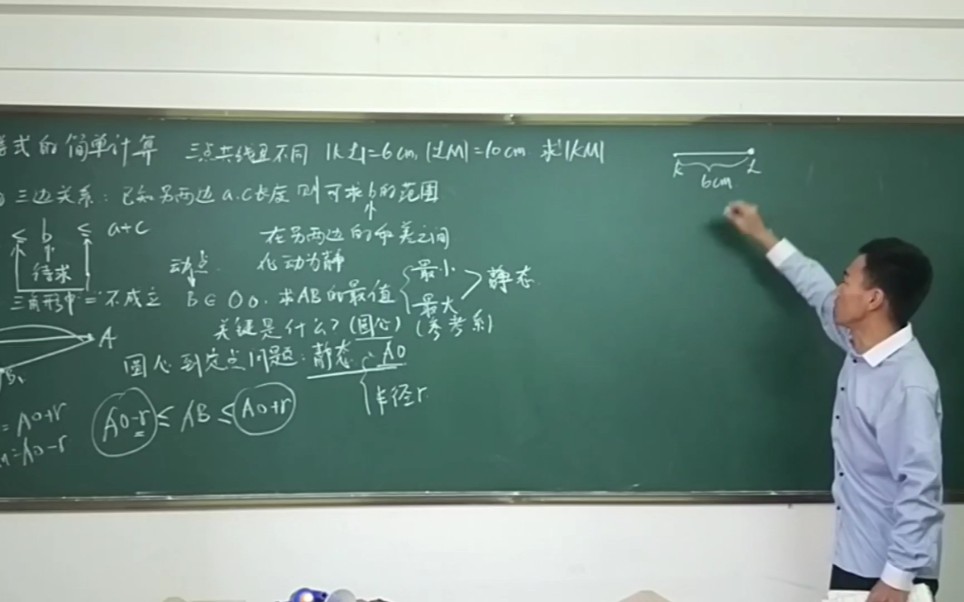 式的简单计算 三点共线且不同 |KL|=6cm, |LM|=10cm 求|KM|
三边关系: 已知另两边a.c长度 则可求b的范围
≤ b ≤ a+c 在另两边的和差之间
待求 动点 化动为静
三角形中"="不成立 B∈⊙O. 求AB的最值 { 最小 最大 > 静态
A 关键是什么? (圆心) (参考系)
B₁ 圆心到定点问题: 静态 AO
半径r
=AO+r AO-r ≤ AB ≤ AO+r
=AO-r
K L
6cm